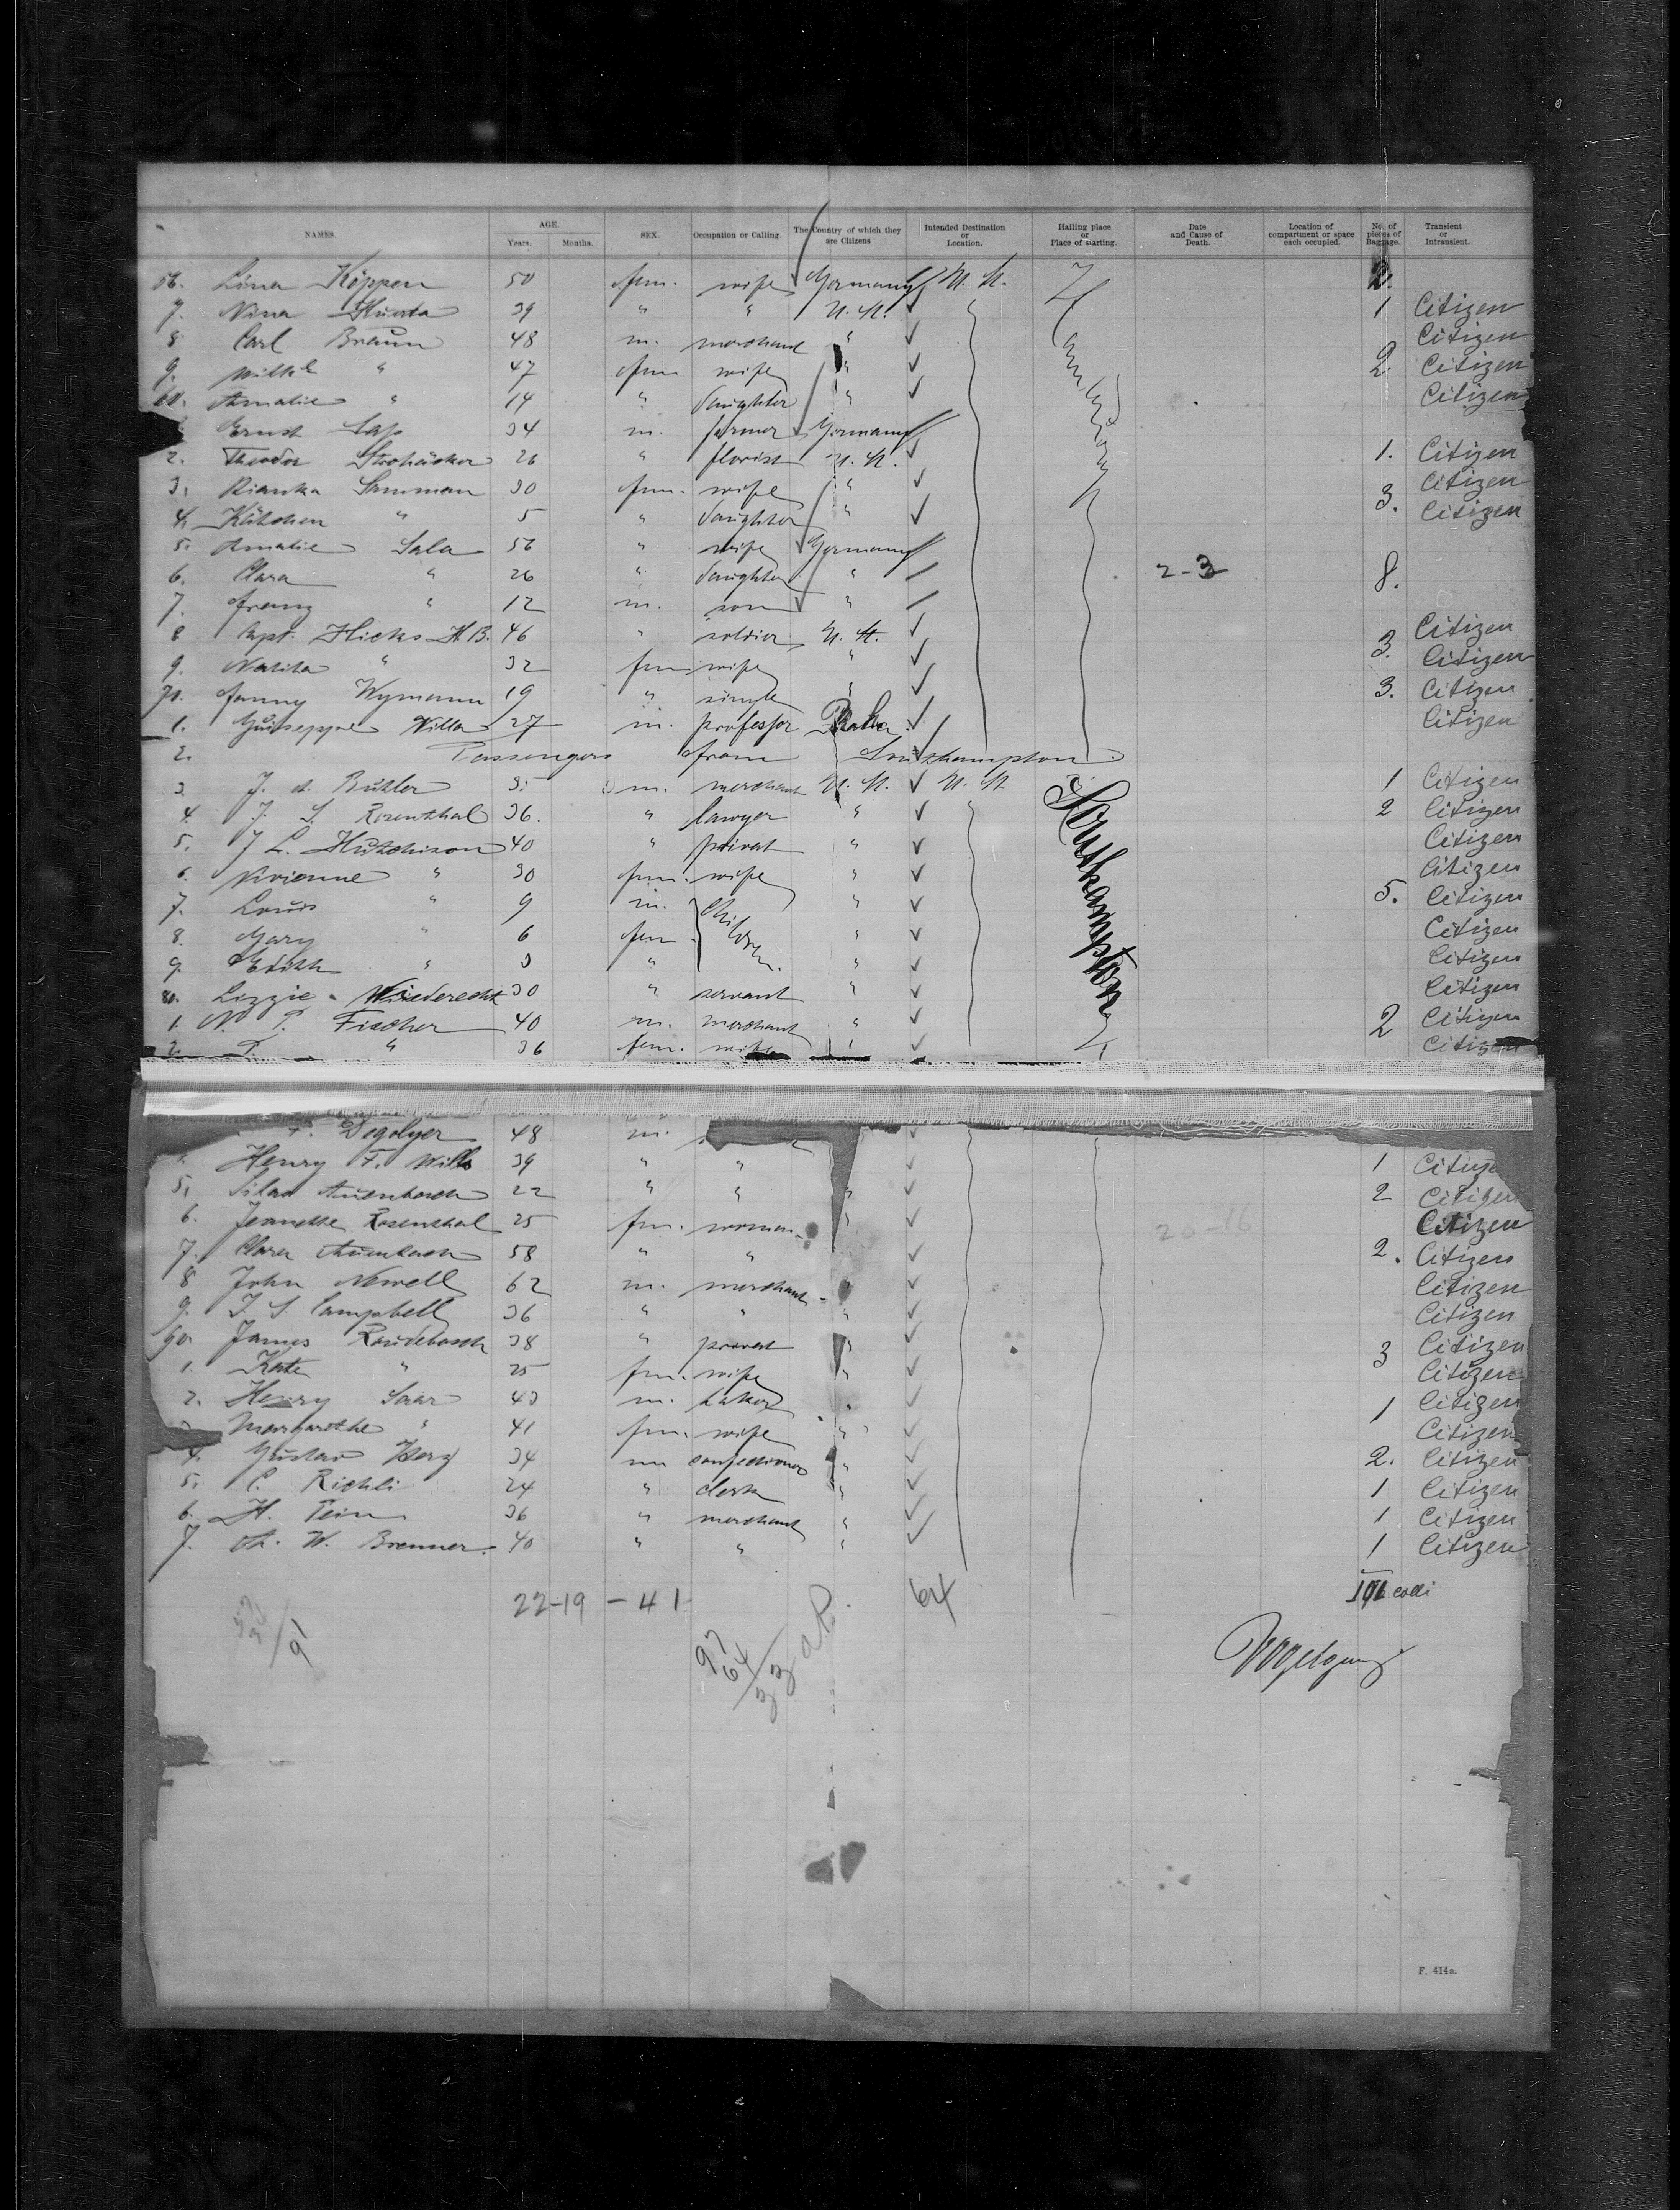 NAMES. AGE. Years. Months. SEX. Occupation or Calling. The Country of which they are Citizens Intended Destination or Location. Hailing place or Place of starting. Date and Cause of Death. Location of compartment or space each occupied. No. of pieces of Baggage. Transient or Intransient.
56. Lina Köppen 50 fem. wife Germany U. St. 2.
7. Nina 39 " " U. St. 1 Citizen
8 Carl Braun 48 m. merchant " Citizen
9. " 47 fem wife " 2 Citizen
60. Amalie " 14 " daughter " Citizen
Ernst 34 m. farmer Germany
2. Theodor 26 " florist U. St. 1. Citizen
3. Bianka Samman 30 fem. wife " Citizen
4. Kätchen " 5 " daughter " 3. Citizen
5. Amalie Sala 56 " wife Germany
6. Clara " 26 " daughter " 2-3 8.
7. Franz " 12 m. son "
8 Capt. Hicks H. B. 46 " soldier U. St. Citizen
9. " 32 fem wife " 3. Citizen
70. Fanny Wymann 19 " single " 3. Citizen
1. Guiseppe Villa 27 m. professor Citizen
2. Passengers from Southampton
3. J. A. Butler 35 m. merchant U. St. U. St. Southampton 1 Citizen
4. J. S. Rosenthal 36. " lawyer " 2 Citizen
5. J L. Hutchison 40 " privat " Citizen
6. Vivienne " 30 fem. wife " Citizen
7. Louis " 9 m. children " 5. Citizen
8. Mary " 6 fem " Citizen
9. Edith " 3 " " Citizen
80. Lizzie Wiederecht 30 " servant " Citizen
1. N. T. Fischer 40 m. merchant " 2 Citizen
2. T. " 36 fem. wife " Citizen
F. Degolyer 48 m.
Henry F. Wills 39 " " 1 Citizen
5. Silas Auenbach 22 " " " 2 Citizen
6. Jeanette Rosenthal 25 fem. woman " 20-16 Citizen
7. Clara Auenbach 58 " " 2. Citizen
8 John Newell 62 m. merchant Citizen
9. J. S. Campbell 36 " " " Citizen
90. James Roudebosch 38 " privat " 3 Citizen
1. Kate " 25 fem. wife " Citizen
2. Henry Saar 43 m. baker 1 Citizen
Margarethe " 41 fem. wife " Citizen
4. Gustav Herz 34 m confectioner " 2. Citizen
5. C. Richli 24 " clerk " 1 Citizen
6. H. 36 " merchant " 1 Citizen
7. A. W. Brenner. 40 " " " 1 Citizen
22-19 - 41 64 colli
91
97
64
33
F. 414a.